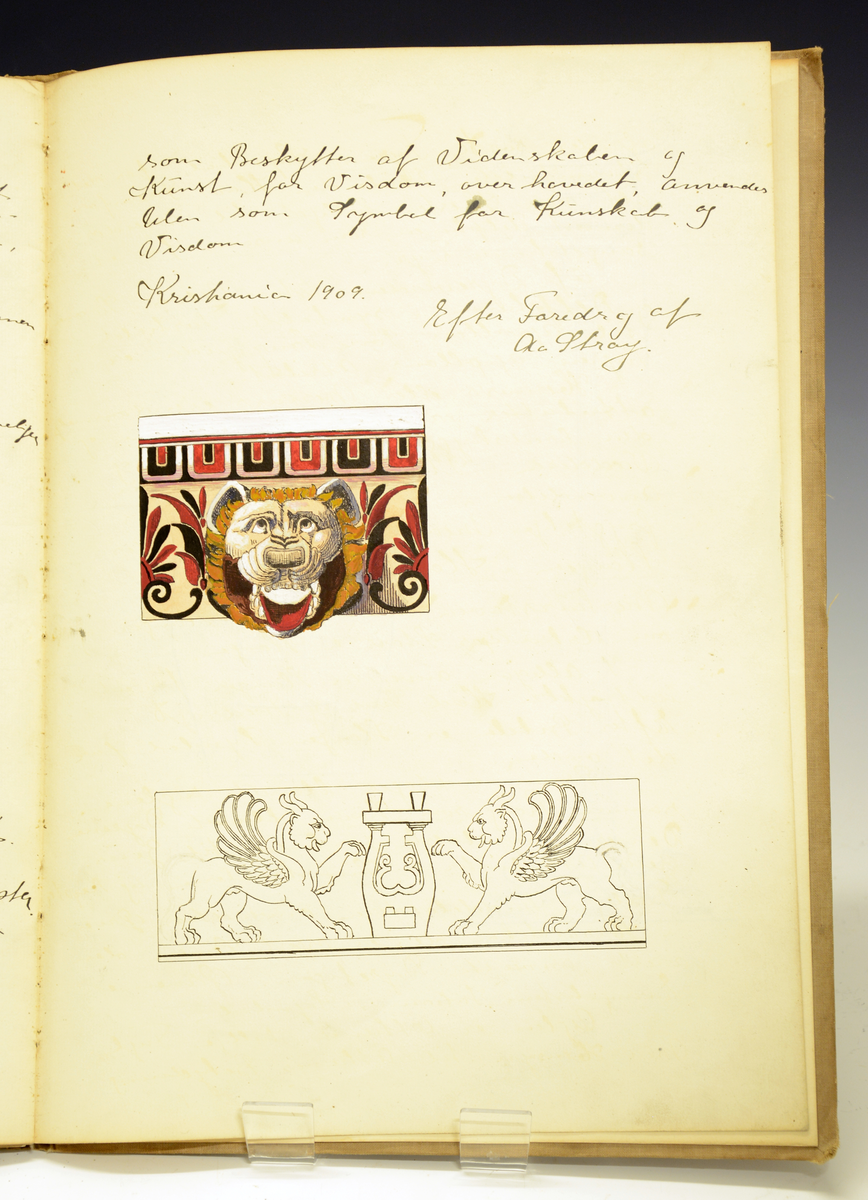 som Beskytter af Videnskaben og
Kunst, for Visdom, over hovedet, anvendes
Ulen som Symbol for Kunskab og
Visdom
Kristiania 1909.
Efter Foredrg af
Aa Stray.